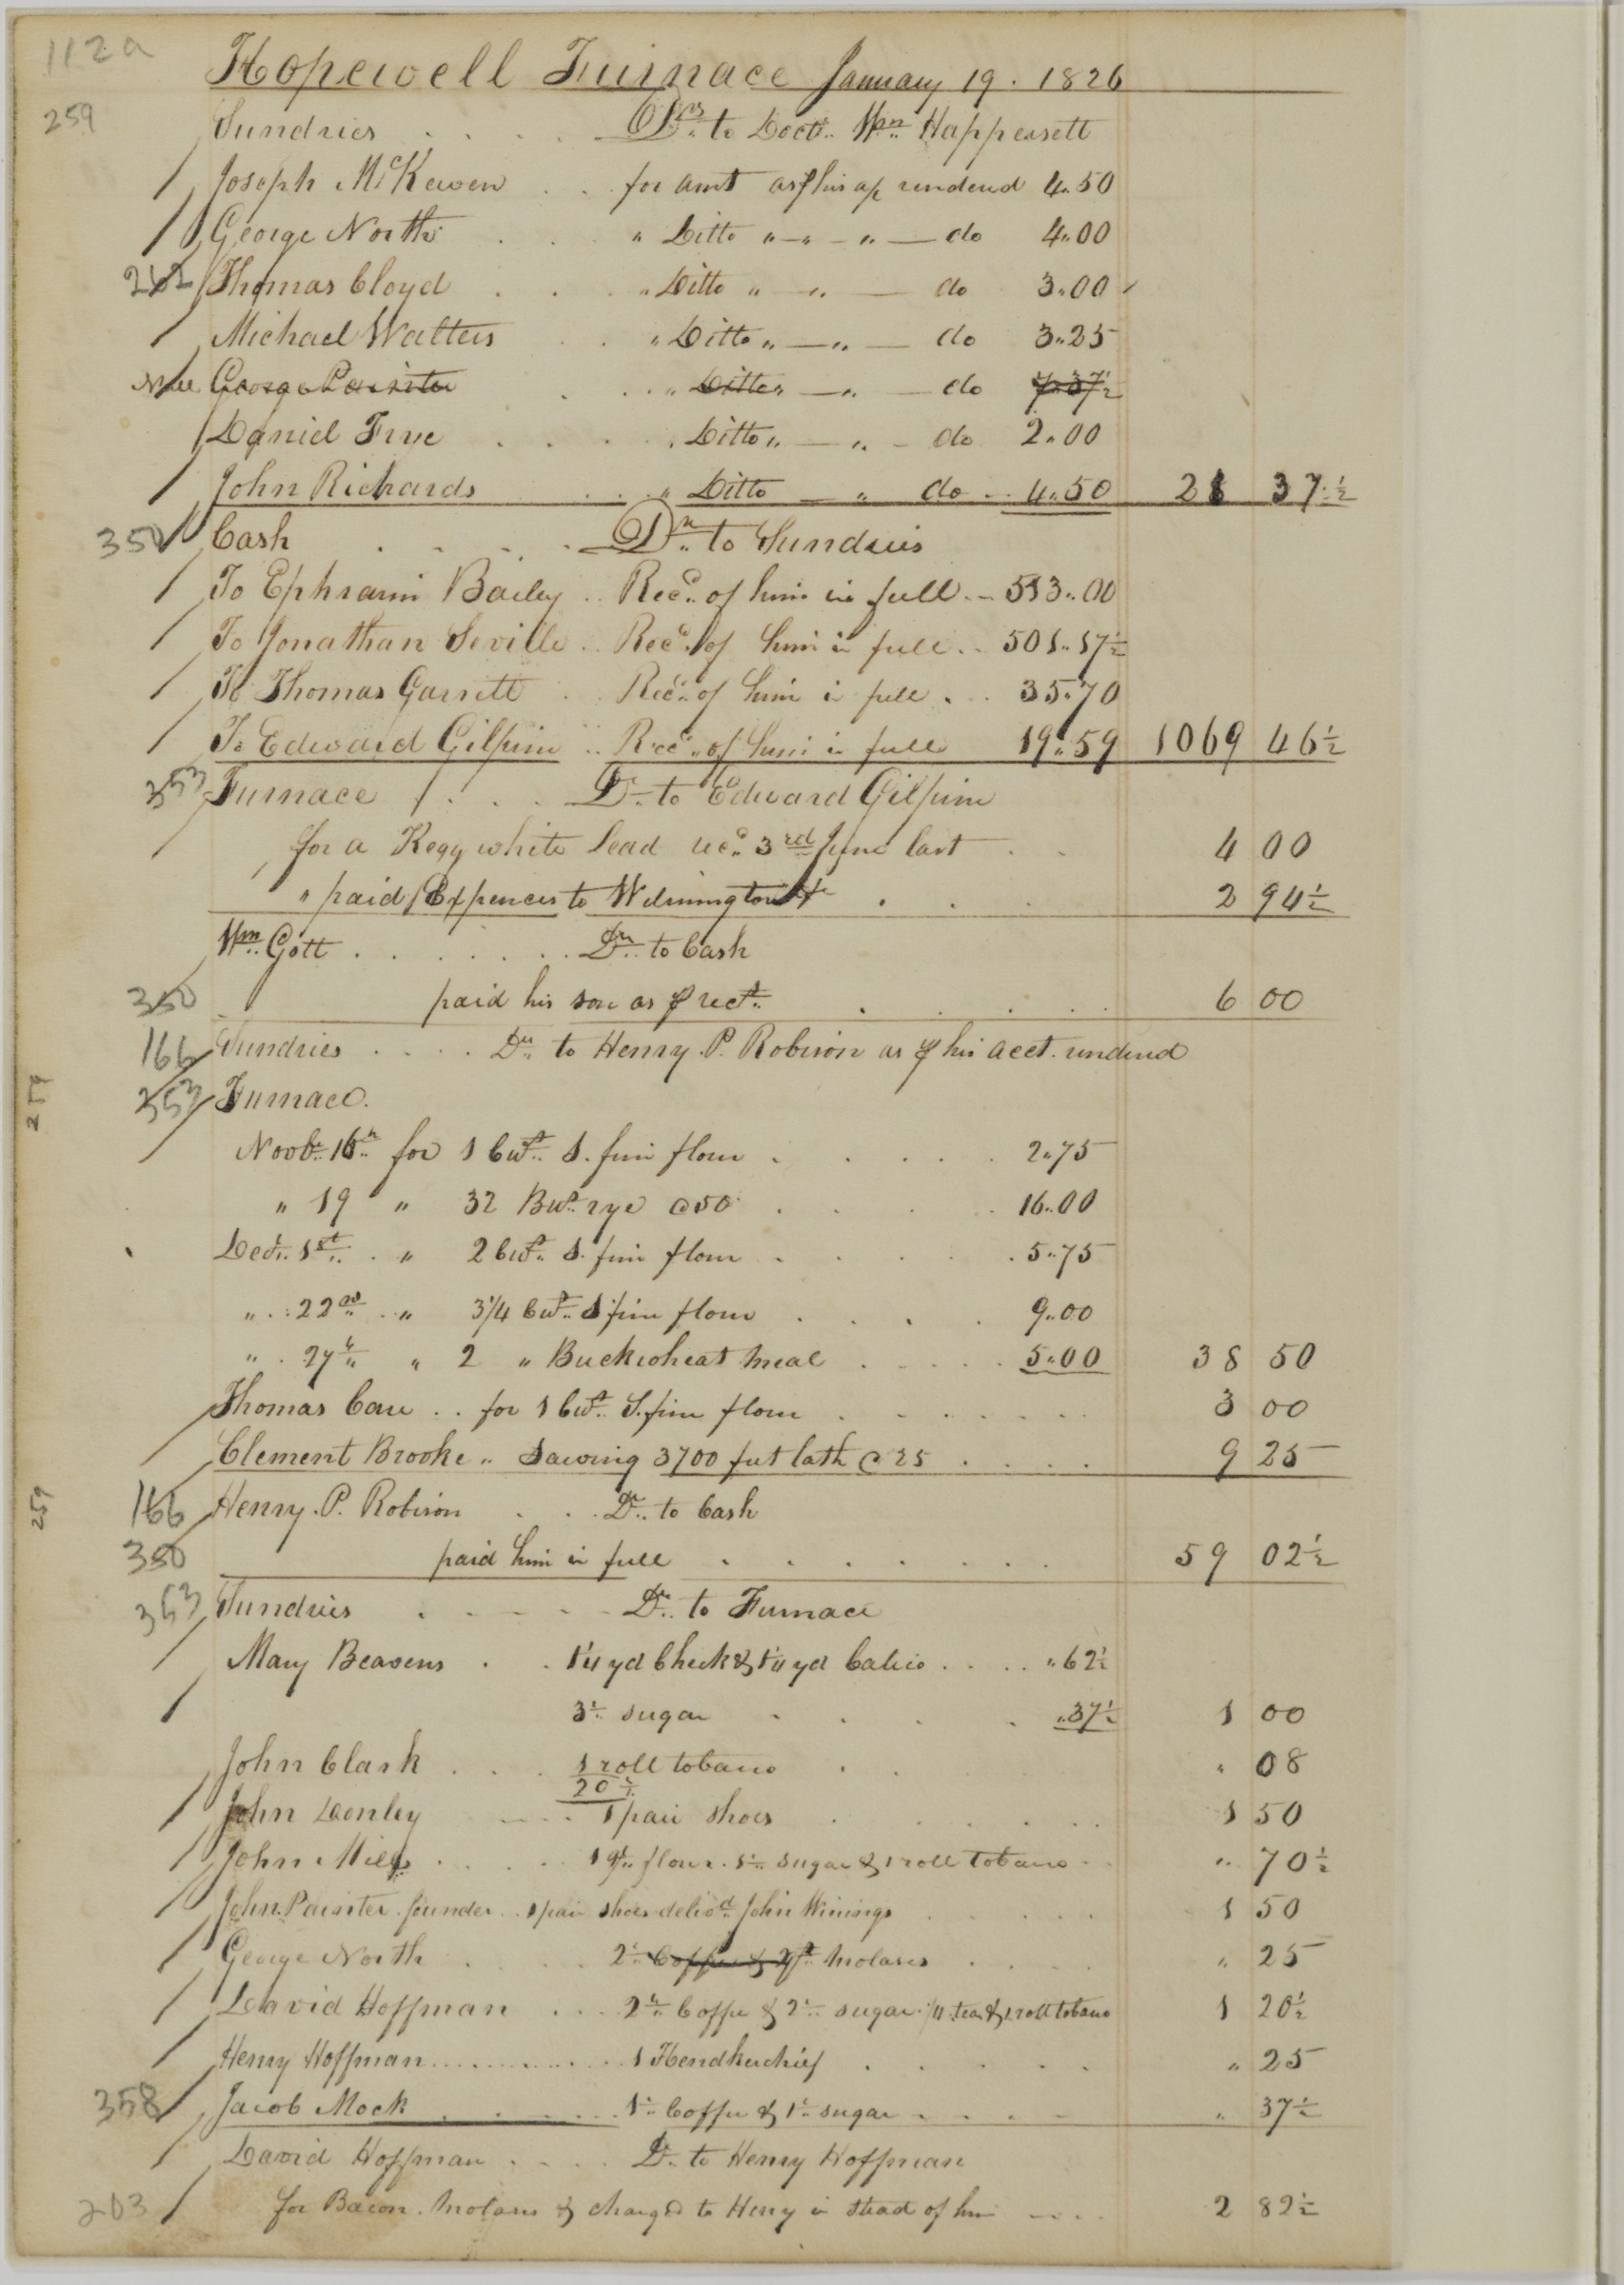 112a
Hopewell Furnace January 19. 1826
259
Sundries . . . . Drs to Doctr. Wm Happersett
Joseph McKewen . . for amt as ⅌ his a/c rendered 4.50
George North . . . " Ditto " — " — " — do 4.00
262 Thomas Cloyd . . . " Ditto " — " — do 3.00
Michael Walters . . " Ditto " — " — do 3.25
George Painter . . " Ditto " — " — do 7.37½
Daniel Frye . . . . " Ditto " — " — do 2.00
John Richards . . . " Ditto — " do . . 4.50 28 37½
350 Cash . . . . . Dr. to Sundries
To Ephraim Bailey . . Recd. of him in full . . 513.00
To Jonathan Seville . . Recd. of him in full . . 501.17½
To Thomas Garrett . . Recd. of him in full . . . 35.70
To Edward Gilpin . . Recd. of him in full 19.59 1069 46½
353 Furnace . . . Dr. to Edward Gilpin
for a Kegg white lead recd. 3rd June last . . 4 00
" paid Expences to Wilmington . . . 2 94½
Wm. Gott . . . . . . . Dr. to Cash
350 paid his son as ⅌ rect. . . . . 6 00
166 Sundries . . . . Dr. to Henry P. Robison as ⅌ his acct. rendered
353 Furnace.
Novbr. 16th for 1 Cwt. S. fine flour . . . . . 2.75
" 19 " 32 Bus. rye @ 50 . . . . 16.00
Decr. 1st. . " 2 Cwt. S. fine flour . . . . . 5.75
" . . 22nd . " 3¼ Cwt. S. fine flour . . . . 9.00
" . 27th " 2 " Buckwheat meal . . . . . 5.00 38 50
Thomas Care . . for 1 Cwt. S. fine flour . . . . . . . 3 00
Clement Brooke " Sawing 3700 feet lath @ 25 . . . . 9 25
166 Henry P. Robison . . . Dr. to Cash
350 paid him in full . . . . . . . 59 02½
353 Sundries . . . . . Dr. to Furnace
Mary Beavens . . 1¼ yd Check & 1¼ yd Calico . . . . " 62½
3lb. sugar . . . . . . " 37½ 1 00
John Clark . . . 1 roll tobacco . . " 08
20th
John Donley . . . . 1 pair shoes . . . . . . 1 50
John Miles . . . . . 1 qr. flour. 1lb. sugar & 1 roll tobacco . . " 70½
John Painter founder . . 1 pair shoes delivd. John Winings . . . . . 1 50
George North . . . . . 2lb. Coffee & 2qt. molases . . . . " 25
David Hoffman . . . 2lb. Coffee & 2lb. sugar ¼ tea & 1 roll tobacco 1 20½
Henry Hoffman . . . . . . . . . . . 1 Hendkerchief . . . . . " 25
358 Jacob Mock . . . . . 1lb. Coffee & 1lb. sugar . . . . " 37½
David Hoffman . . . . Dr. to Henry Hoffman
203 for Bacon. Molases & charged to Henry in stead of him . . . . 2 82½
259
259